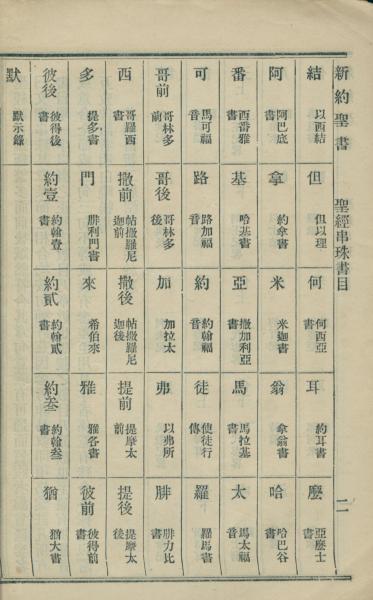 新約聖書 聖經串珠書目 二
結 以西結 但 但以理 何 何西亞書 耳 約耳書 麼 亞麼士書
阿 阿巴底書 拿 約拿書 米 米迦書 翁 拿翁書 哈 哈巴谷書
番 西番雅書 基 哈基書 亞 撒加利亞書 馬 馬拉基書 太 馬太福音
可 馬可福音 路 路加福音 約 約翰福音 徒 使徒行傳 羅 羅馬書
哥前 哥林多前 哥後 哥林多後 加 加拉太 弗 以弗所 腓 腓力比書
西 哥羅西書 撒前 帖撒羅尼迦前 撒後 帖撒羅尼迦後 提前 提摩太前 提後 提摩太後
多 提多書 門 腓利門書 來 希伯來 雅 雅各書 彼前 彼得前書
彼後 彼得後書 約壹 約翰壹書 約貳 約翰貳書 約叁 約翰叁書 猶 猶大書
默 默示錄